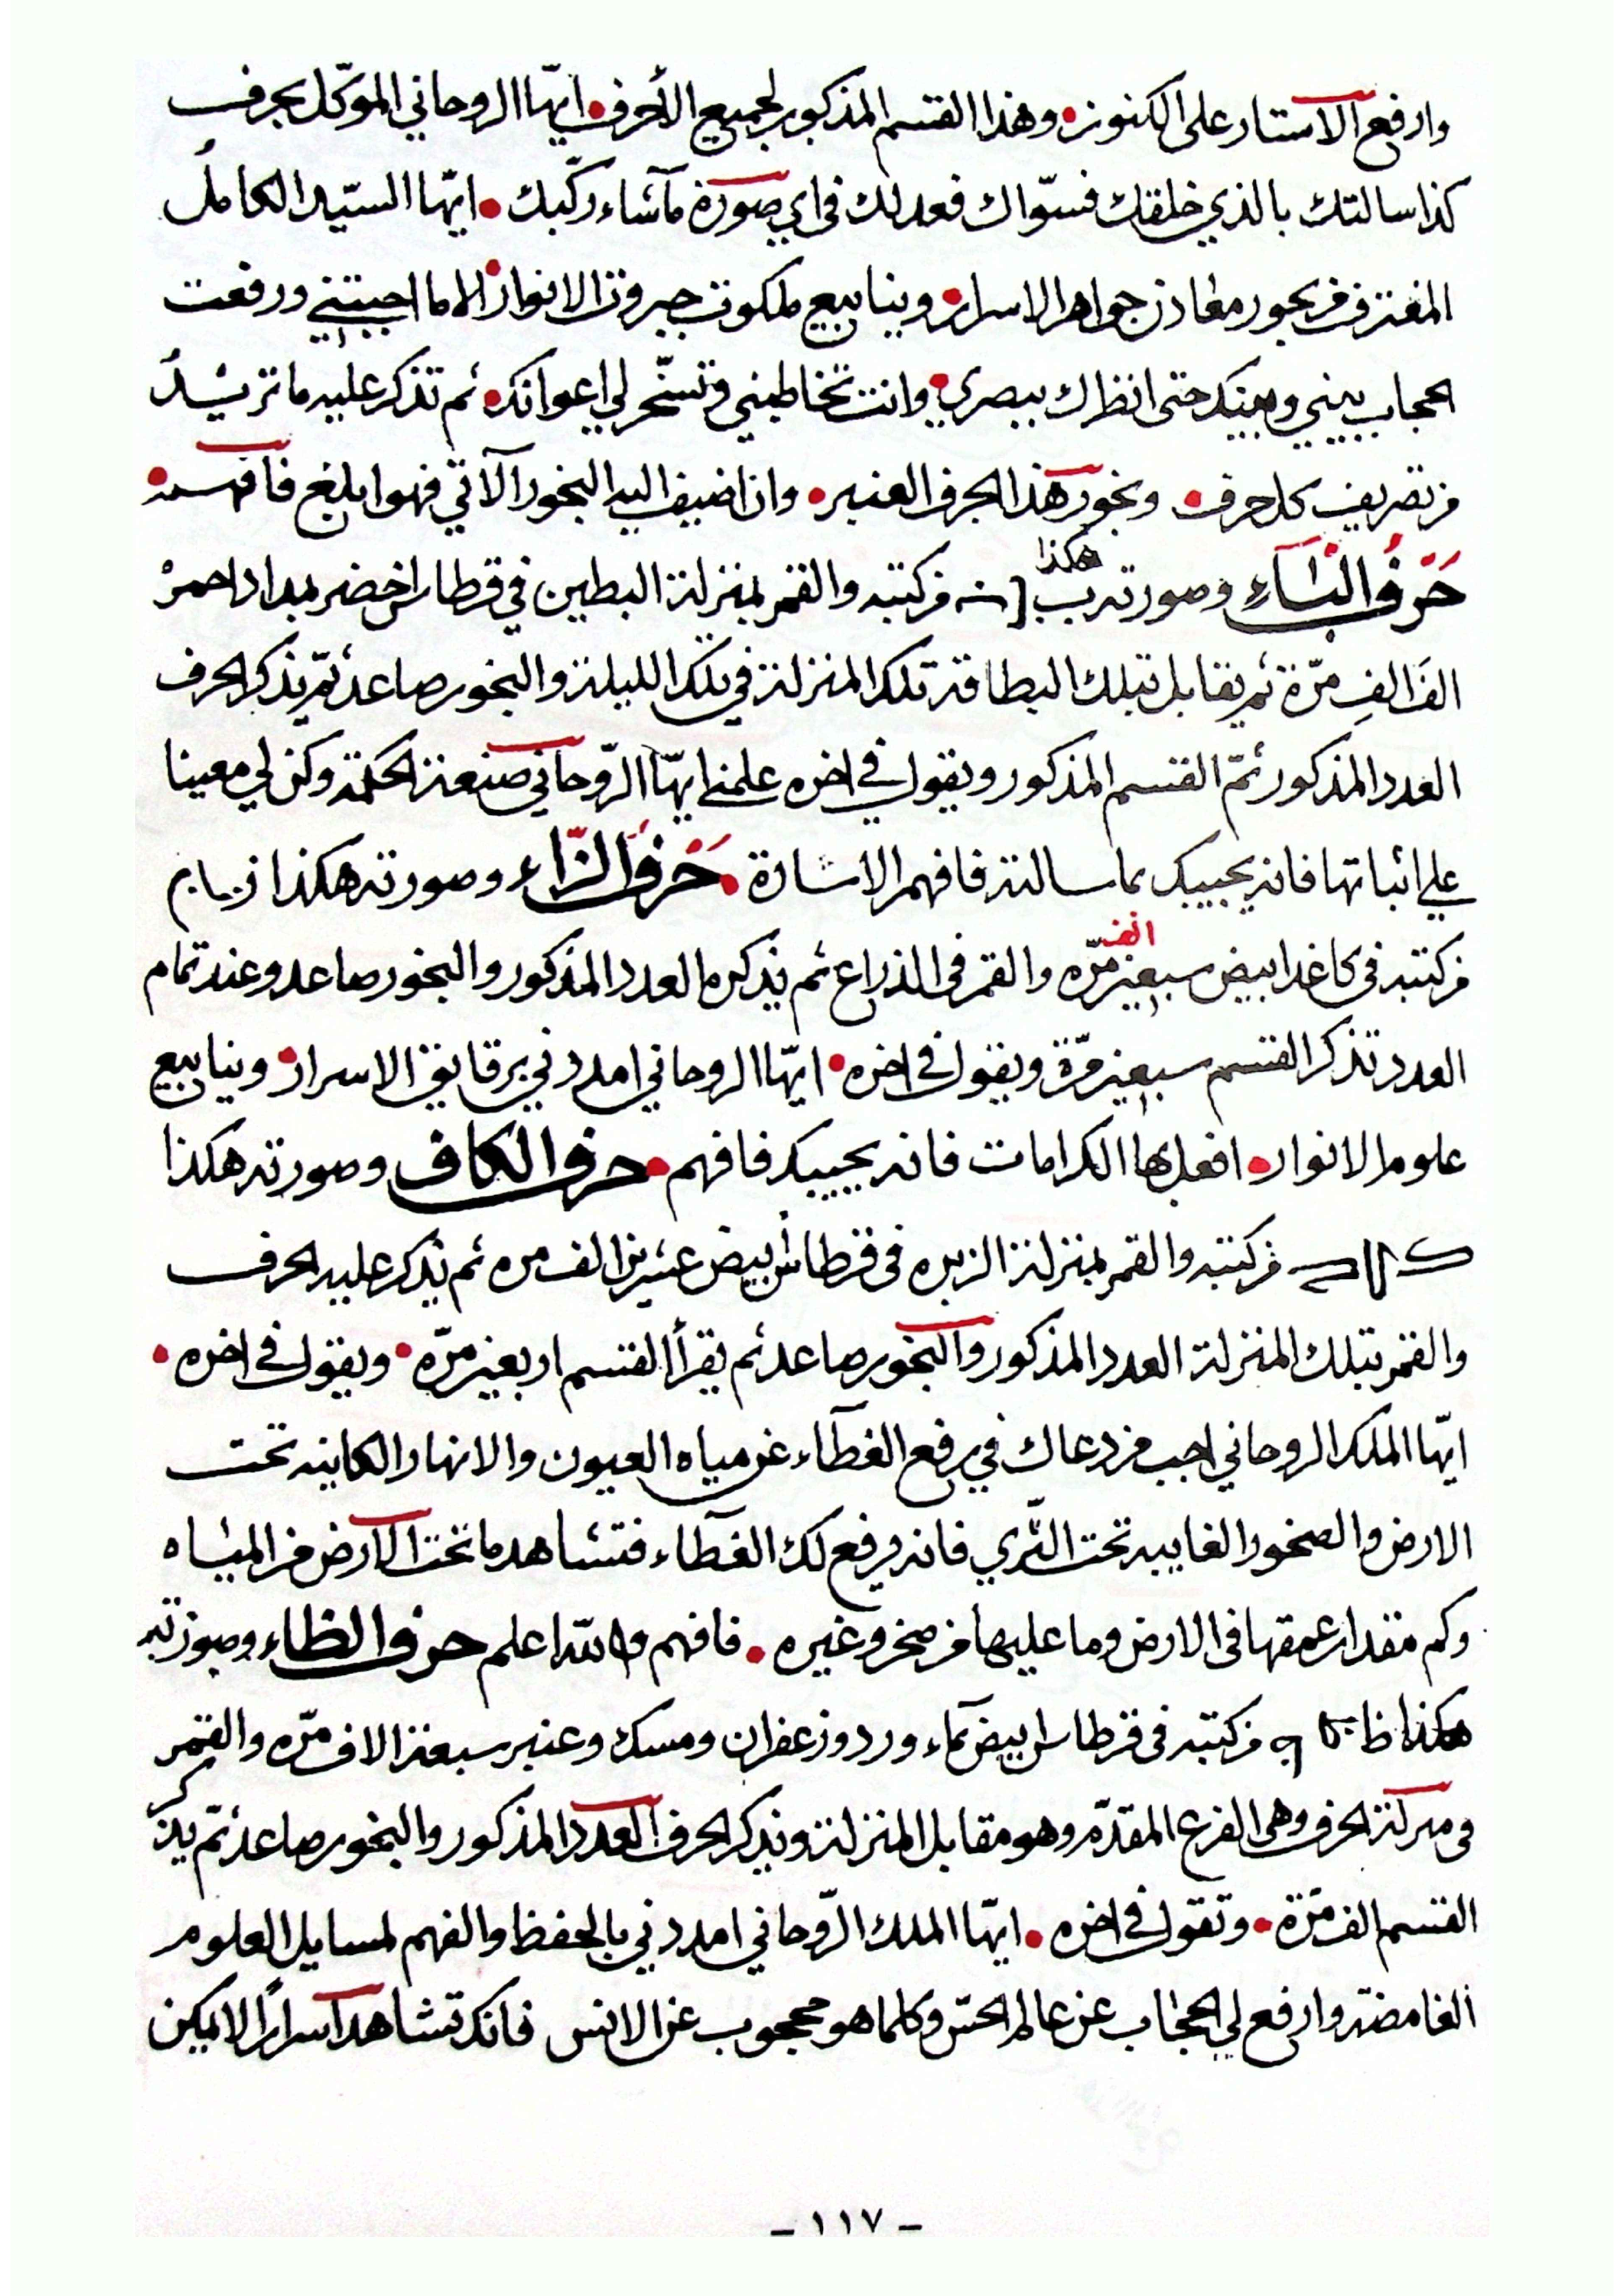 وارفع الاستار على الكنوز • وهذا القسم المذكور لجميع الأحرف • ايّها الروحاني الموكّل بحرف
كذا سالتك بالذي خلقك فسوّاك فعدلك في اي صورة مآشاء ركّبك • ايّها السيّد الكاملُ
المغترف من بحور معادن جواهر الاسرار • وينابيع ملكوت جبروت الانوار • الا ما اجبتني ورفعت
الحجاب بيني وبينك حتى انظرك ببصري • وانت تخاطبني وتسخّر لي اعوانك • ثم تذكر عليه ما تريدُ
من تصريف كل حرف • وبخور هذا الحرف العنبر • وان اضيف اليه البخور الآتي فهو ابلغ فافهمه •
حَرْفُ البَاءِ وصورته هكذا ب [ من كتبه والقمر بمنزلة البطين في قرطاس اخضر بمداد احمرْ
الفَ الفِ مرّة ثم يقابل بتلك البطاقة تلك المنزلة في تلك الليلة والبخور صاعد ثمّ يذكر الحرف
العدد المذكور ثمّ القسم المذكور ويقول في اخره علمني ايهّا الرّوحاني صنعة الحكمة وكن لي معينا
علي اثباتها فانه يجيبك بما سالته فافهم الاشارة • حَرْفُ الزّاء وصورته هكذا ز
من كتبه في كاغد ابيض سبعين الف مرّه والقمر في الذراع ثم يذكره العدد المذكور والبخور صاعد وعند تمام
العدد تذكر القسم سبعين مرّة ويقول في اخره • ايّها الروحاني امددني برقايق الاسرار • وينابيع
علوم الانوار • افعل بها الكرامات فانه يجيبك فافهم • حرف الكاف وصورته هكذا
ك من كتبه والقمر بمنزلة الزبره في قرطاس أبيض عشرين الف مره ثم يذكر عليه الحرف
والقمر بتلك المنزلة العدد المذكور والبخور صاعد ثم يقرأ القسم اربعين مرّه • ويقول في اخره •
ايّها الملك الروحاني اجب من دعاك في رفع الغطآء عن مياه العيون والانهار الكاينه تحت
الارض والصخور الغايبه تحت الثّري فانه يرفع لك الغطآء فتشاهد ما تحت الارض من المياه
وكم مقدار عمقها في الارض وما عليها من صخر وغيره • فافهم والله اعلم حرف الظاء وصورته
هكذا ظ من كتبه في قرطاس ابيض بمآء ورد وزعفران ومسك وعنبر سبعة الاف مرّه والقمر
في منزلة الحرف وهي الفرع المقدّم وهو مقابل المنزلة ويذكر الحرف العدد المذكور والبخور صاعد ثمّ يذكر
القسم الف مرّة • وتقول في اخره • ايّها الملك الرّوحاني امددني بالحفظ والفهم لمسايل العلوم
الغامضة وارفع لي الحجاب عن عالم الحسّ وكلما هو محجوب عن الانس فانك تشاهد اسرارًا لا يمكن
- ١١٧ -